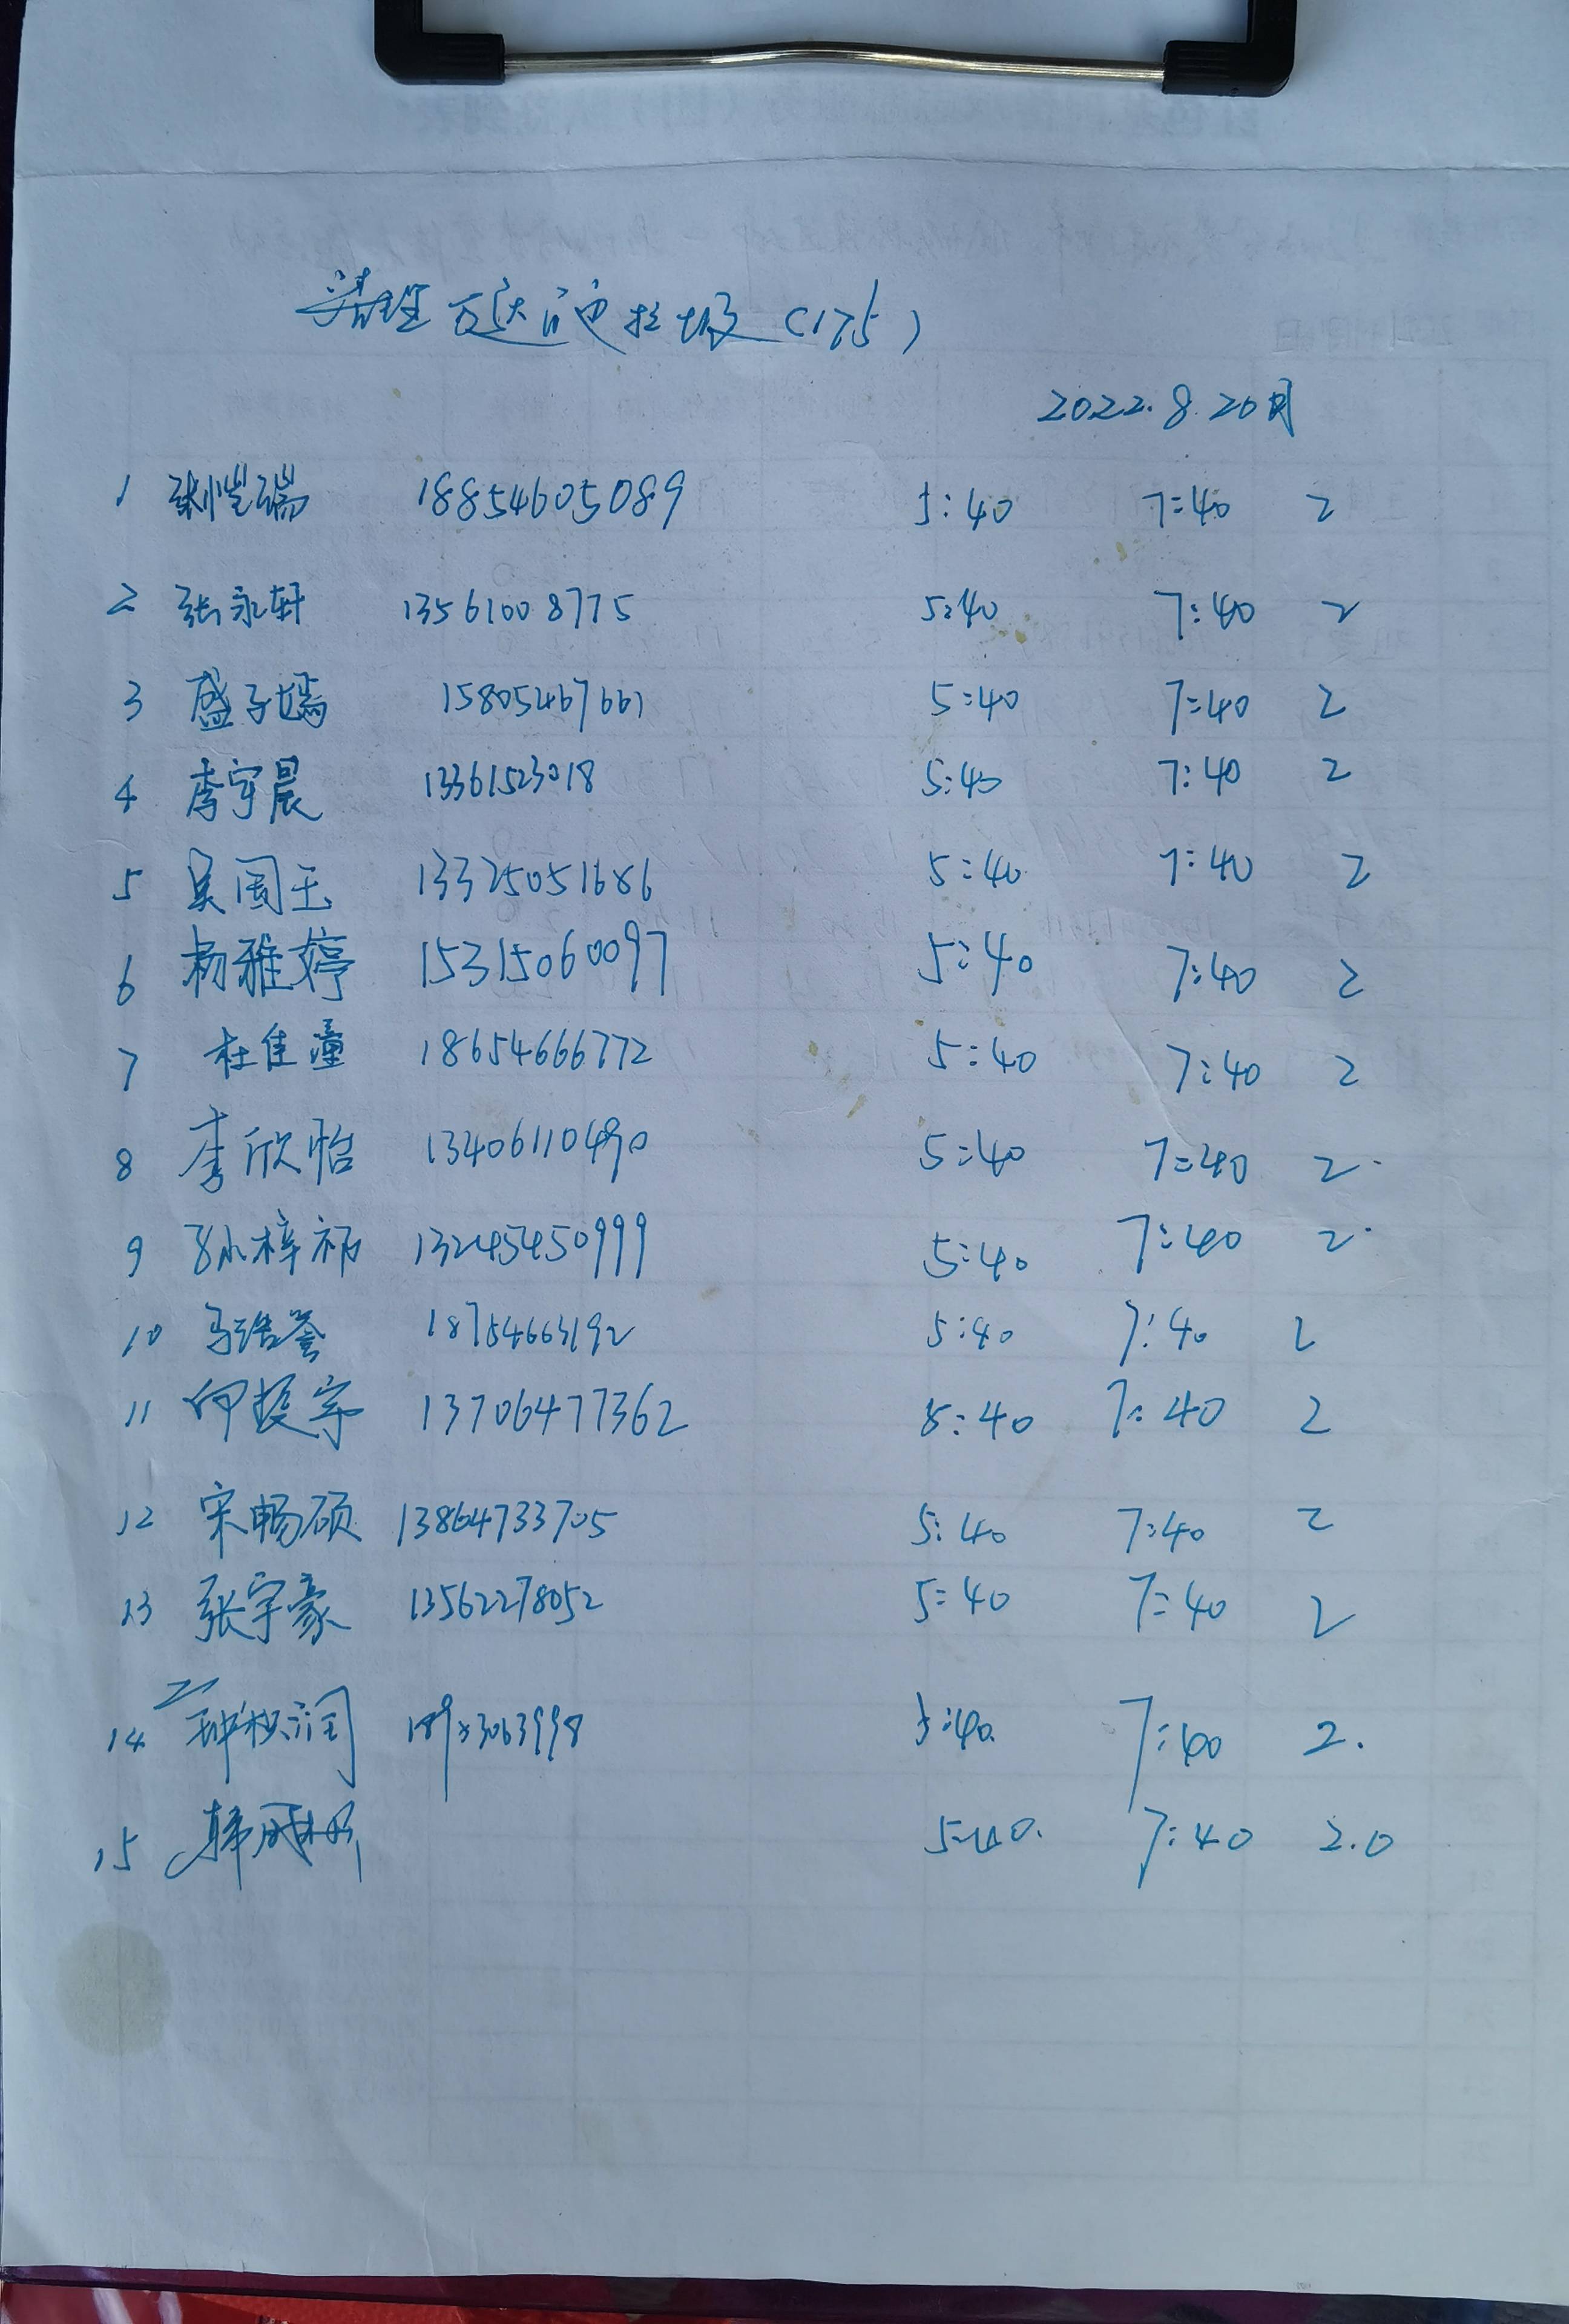 清理万达河边垃圾（175）
2022.8.20日
1 张恺瑞 18854605089 5:40 7:40 2
2 张永轩 13561008775 5:40 7:40 2
3 盛子嫣 15805467661 5:40 7:40 2
4 李宇晨 13361523018 5:40 7:40 2
5 吴国玉 13325051686 5:40 7:40 2
6 杨雅婷 15315060097 5:40 7:40 2
7 杜佳潼 18654666772 5:40 7:40 2
8 李欣怡 13406110490 5:40 7:40 2
9 孙梓祁 13245450999 5:40 7:40 2
10 马浩誉 18754663192 5:40 7:40 2
11 13706477362 5:40 7:40 2
12 宋畅硕 13864733705 5:40 7:40 2
13 张宇豪 13562278052 5:40 7:40 2
14 5:40 7:40 2.
15 5:40. 7:40 2.0